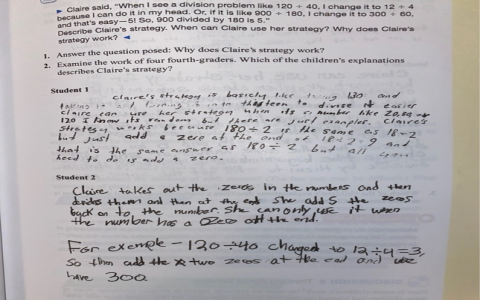 ► Claire said, "When I see a division problem like 120 ÷ 40, I change it to 12 ÷ 4
because I can do it in my head. Or, if it is like 900 ÷ 180, I change it to 300 ÷ 60,
and that's easy—5! So, 900 divided by 180 is 5."
Describe Claire's strategy. When can Claire use her strategy? Why does Claire's
strategy work? ◄
1. Answer the question posed: Why does Claire's strategy work?
2. Examine the work of four fourth-graders. Which of the children's explanations
describes Claire's strategy?
Student 1
Claire's strategy is basicly like 130 and
and turning it into thirteen to divise it easier
Claire can use her strategy when its a number like 20,
120 I know its random but these are just examples. Claire's
strategy works because 180÷2 is the same as 18÷2
but just add a zero at the end 18÷2=9 and
that is the same answer as 180÷2 but all you
need to do is add a zero.
Student 2
Claire takes out the zeros in the numbers and then
divides them and then at the end she adds the zeros
back on to the number. She can only use it when
the number has a zero at the end.
For exemple - 120÷40 changed to 12÷4=3,
So then add the two zeros at the end and
have 300.